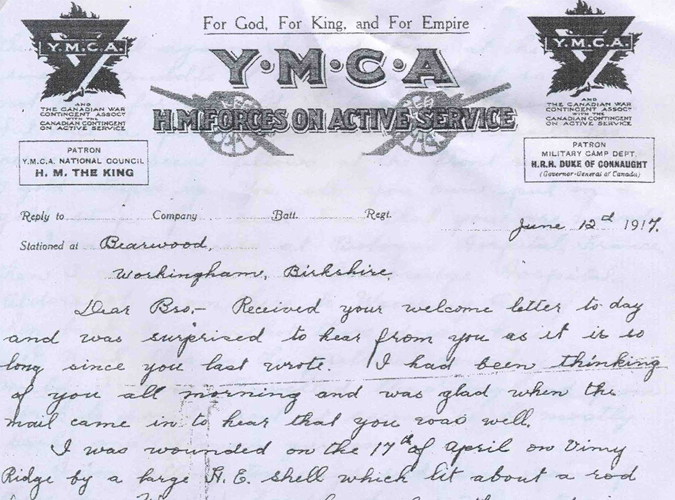 For God, For King, and For Empire
Y·M·C·A
H.M. FORCES ON ACTIVE SERVICE
Y.M.C.A.
AND
THE CANADIAN WAR
CONTINGENT ASSOCT
WITH THE
CANADIAN CONTINGENT
ON ACTIVE SERVICE
PATRON
Y.M.C.A. NATIONAL COUNCIL
H. M. THE KING
Y.M.C.A.
AND
THE CANADIAN WAR
CONTINGENT ASSOCT
WITH THE
CANADIAN CONTINGENT
ON ACTIVE SERVICE
PATRON
MILITARY CAMP DEPT.
H.R.H. DUKE OF CONNAUGHT
(Governor-General of Canada)
Reply to Company Batt. Regt.
June 12th 1917.
Stationed at Bearwood,
Workingham, Birkshire.
Dear Bro:- Received your welcome letter to day
and was surprised to hear from you as it is so
long since you last wrote. I had been thinking
of you all morning and was glad when the
mail came in to hear that you was well.
I was wounded on the 17th of April on Vimy
Ridge by a large H. E. shell which lit about a rod